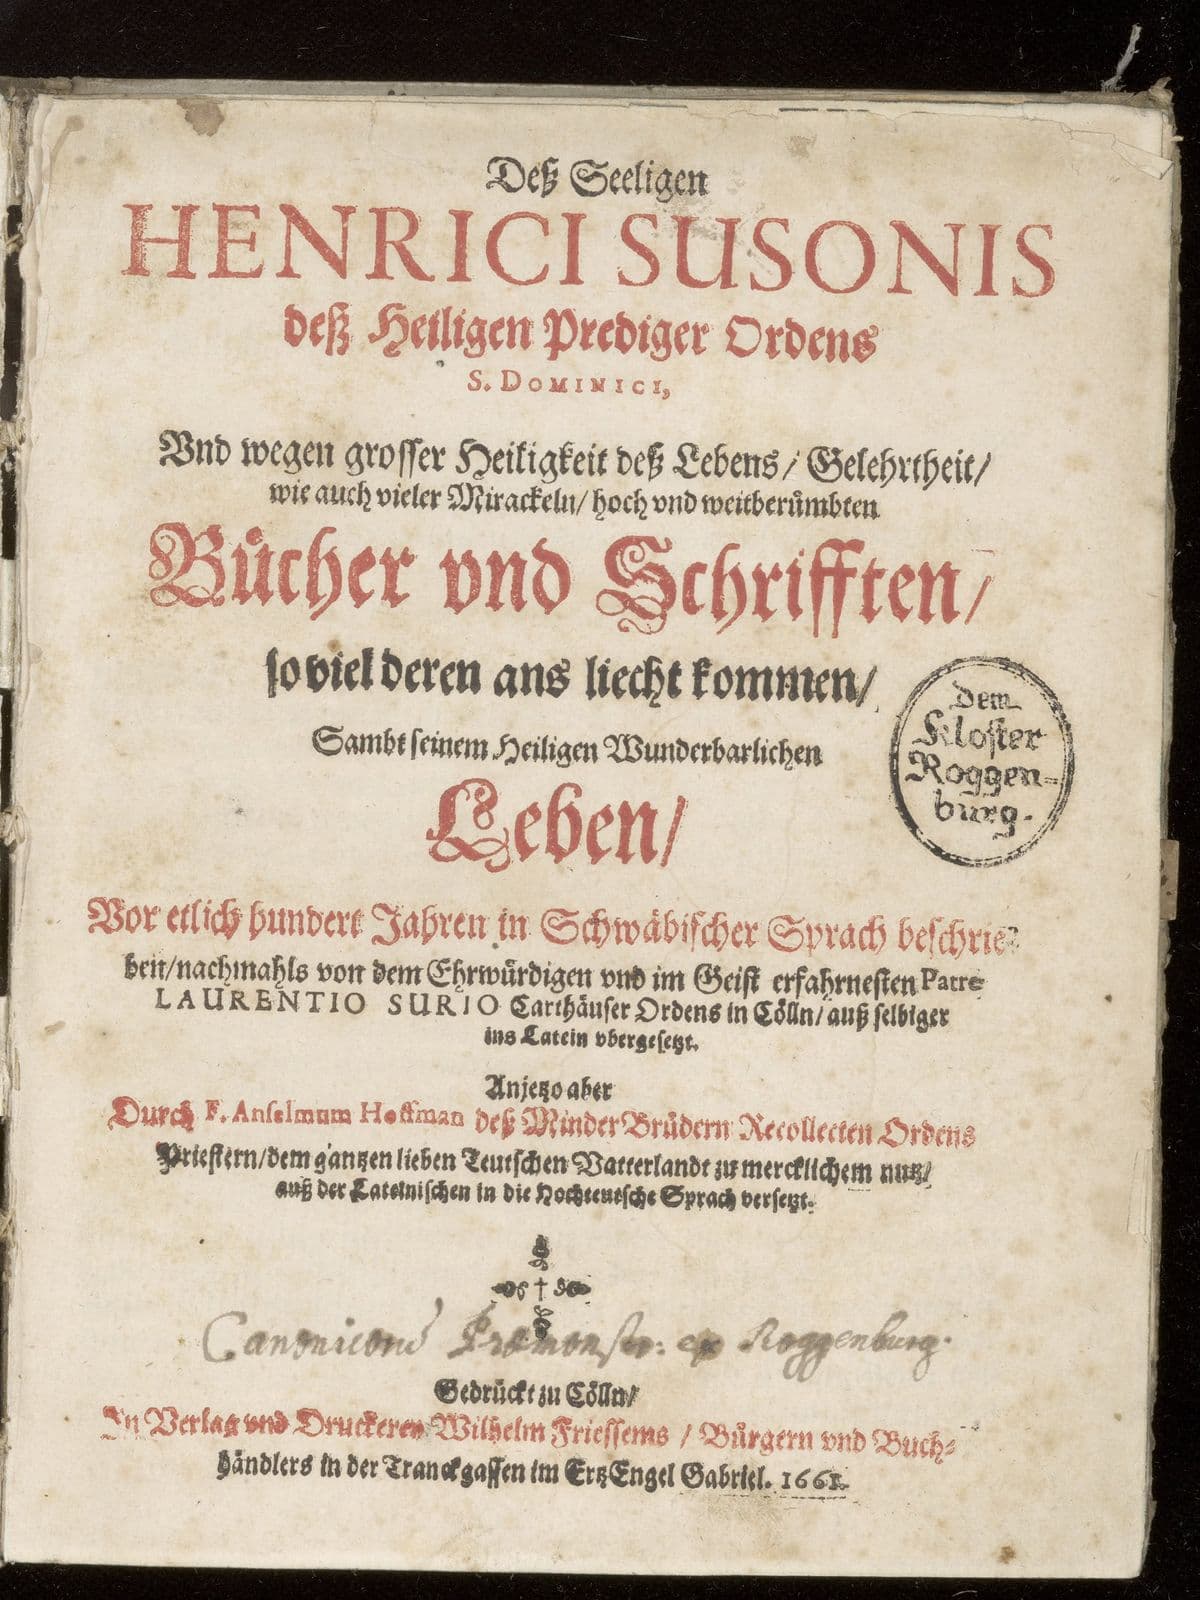 Deß Seeligen
HENRICI SUSONIS
deß Heiligen Prediger Ordens
S. DOMINICI,
Vnd wegen grosser Heiligkeit deß Lebens/ Gelehrtheit/
wie auch vieler Mirackeln/ hoch vnd weitberůmbten
Bücher vnd Schrifften/
so viel deren ans liecht kommen/
Sambt seinem Heiligen Wunderbarlichen
Leben/
dem
Kloster
Roggen-
burg.
Vor etlich hundert Jahren in Schwäbischer Sprach beschrie-
ben/nachmahls von dem Ehrwürdigen vnd im Geist erfahrnesten Patre
LAURENTIO SURIO Carthäuser Ordens in Cölln/ auß selbiger
ins Latein vbergesetzt.
Anjetzo aber
Durch F. Anselmum Hoffman deß Minder Brüdern Recollecten Ordens
Priestern/dem gantzen lieben Teutschen Vatterlandt zu mercklichem nutz/
auß der Lateinischen in die Hochteutsche Sprach versetzt.
Canonicorũ Præmonstr: ex Roggenburg.
Gedrückt zu Cölln/
In Verlag vnd Druckerey Wilhelm Friessems / Bürgern vnd Buch-
händlers in der Tranckgassen im ErtzEngel Gabriel. 1661.